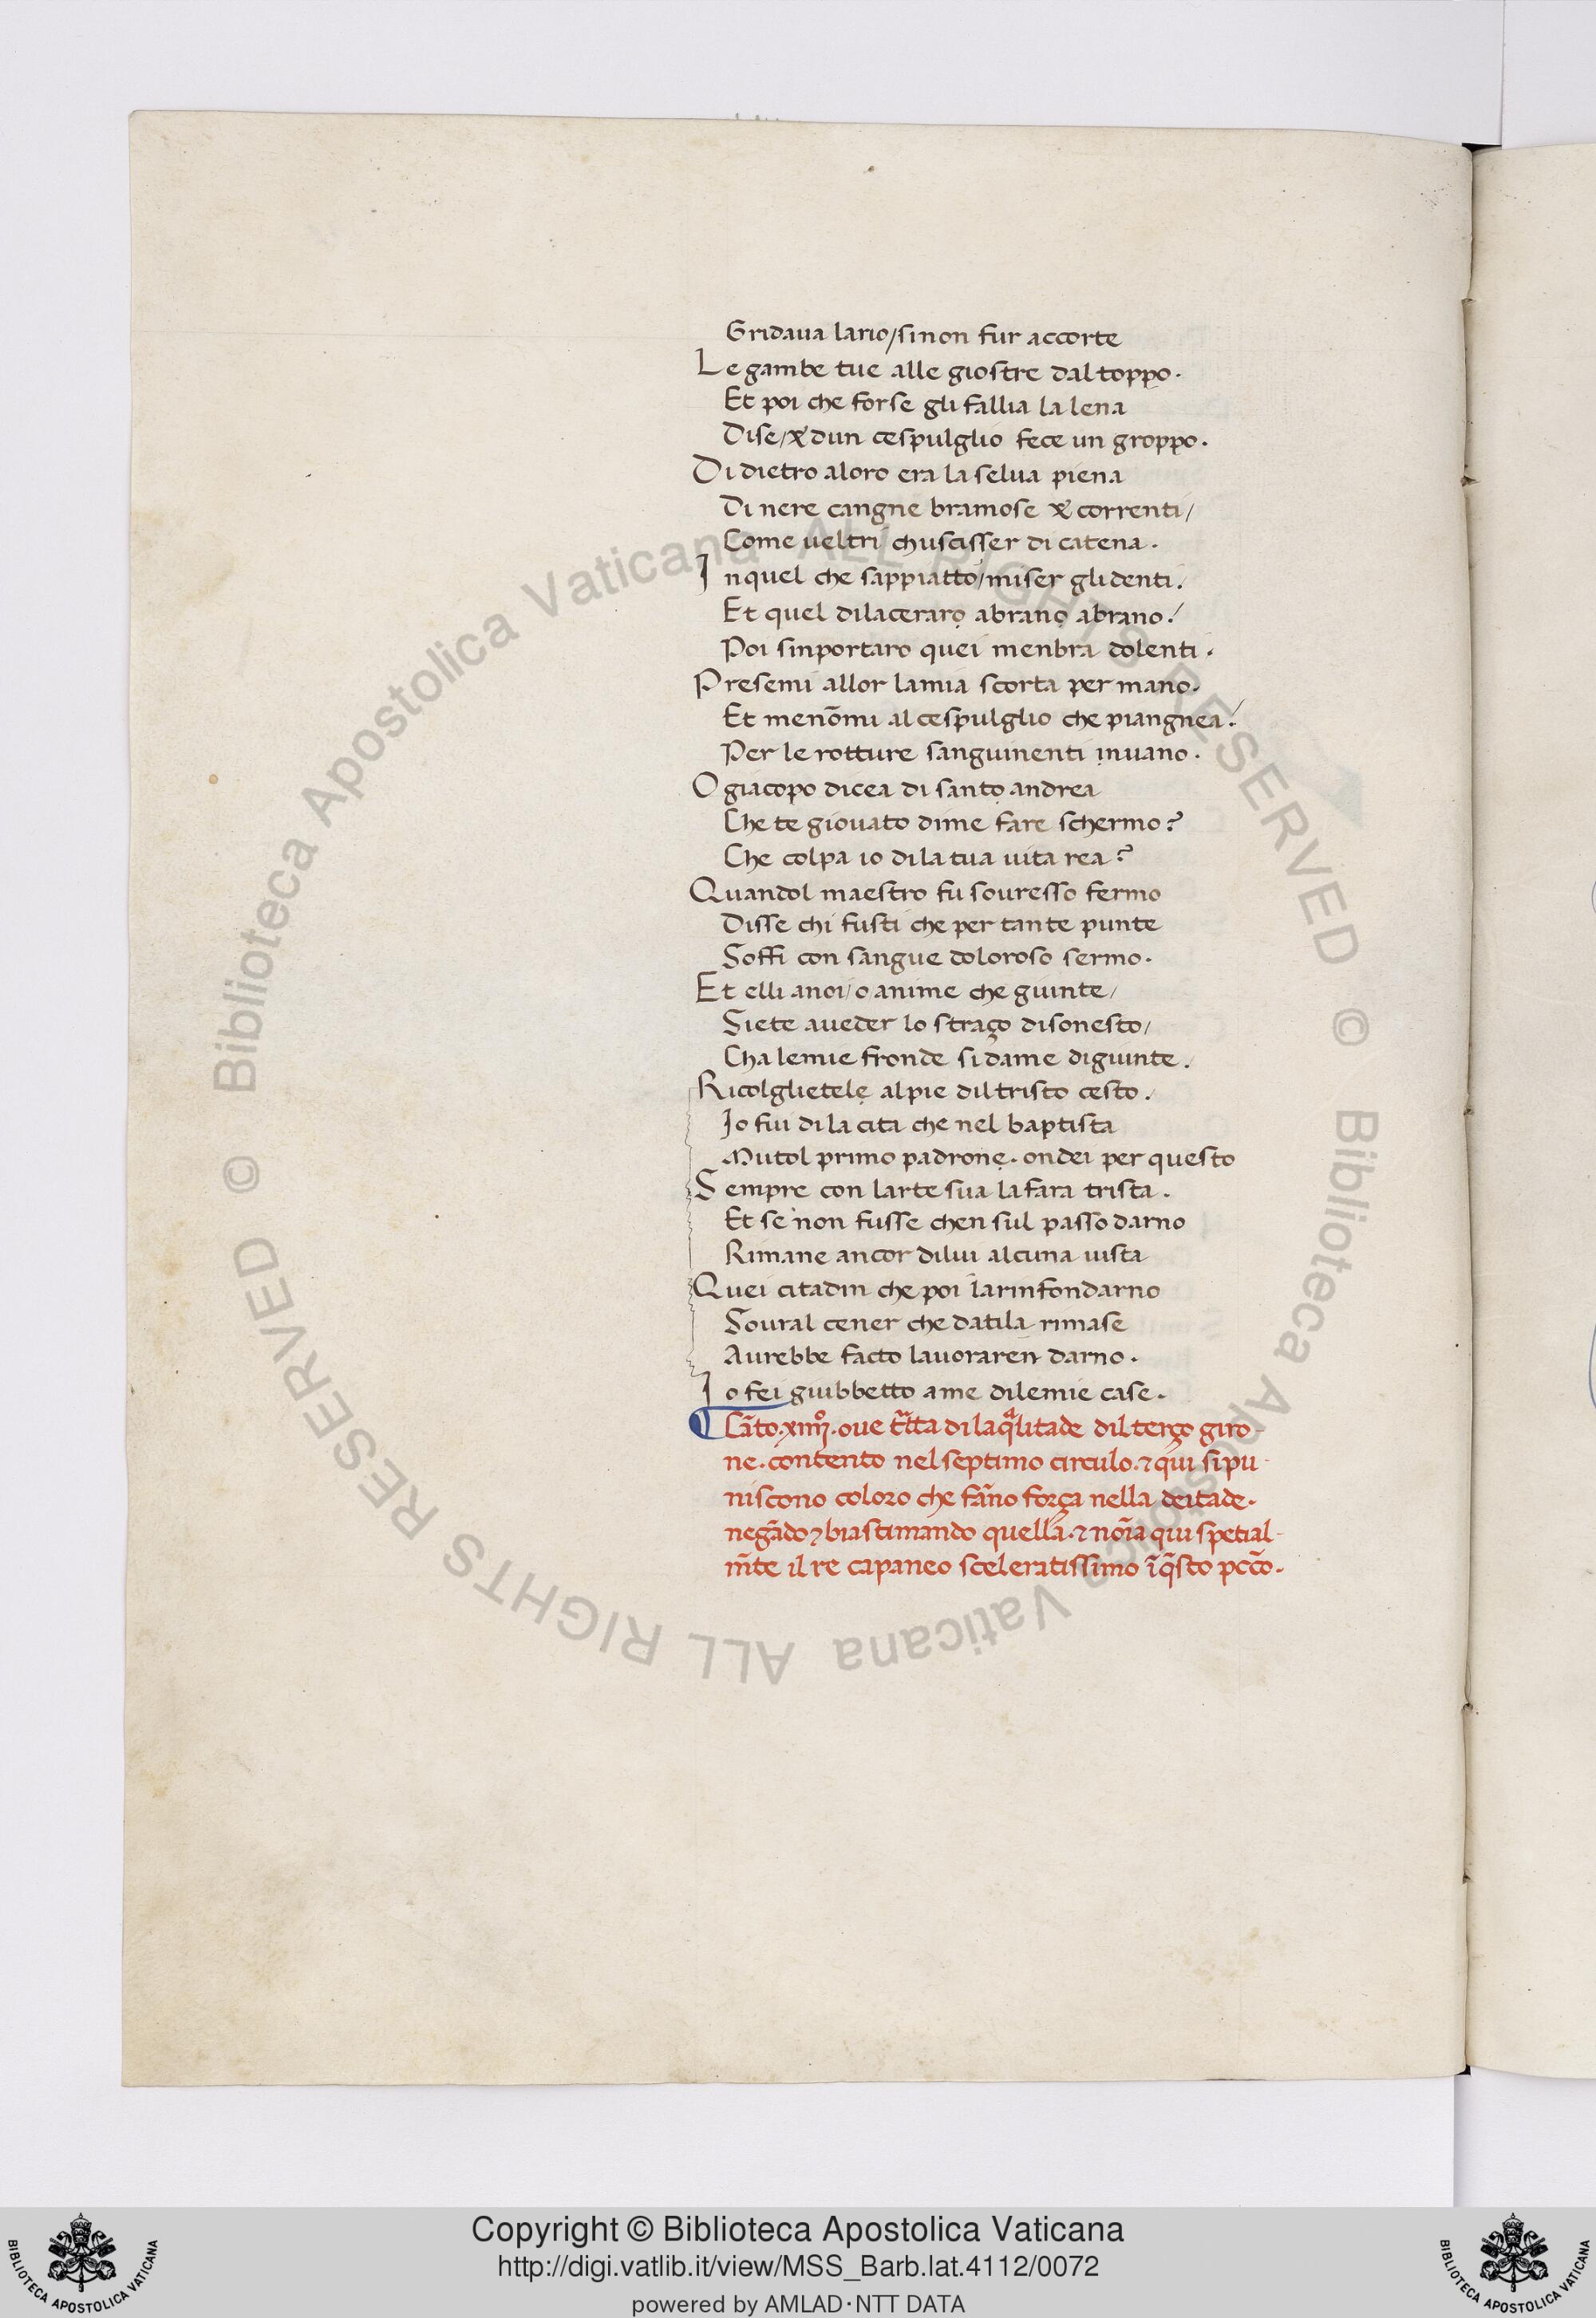 Gridaua lario/si non fur accorte
Le gambe tue alle giostre dal toppo.
Et poi che forse gli fallia la lena
Dise/& dun cespulglio fece un groppo.
Di dietro aloro era la selua piena
Di nere cangne bramose & correnti/
Come ueltri chuscisser di catena.
In quel che sappiatto/miser gli denti.
Et quel dilaceraro abrano abrano/
Poi sinportaro quei menbra dolenti.
Presemi allor lamia scorta per mano.
Et menōmi al cespulglio che piangnea/
Per le rotture sanguinenti inuano.
O giacopo dicea di santo andrea
Che te giouato dime fare schermo?
Che colpa io dila tua uita rea?
Quandol maestro fu souresso fermo
Disse chi fusti che per tante punte
Soffi con sangue doloroso sermo.
Et elli anoi/o anime che giunte/
Siete aueder lo straço disonesto/
Cha lemie fronde si dame digiunte.
Ricolglietele alpie dil tristo cesto.
Io fui di la cita che nel baptista
Mutol primo padrone. ondei per questo
Sempre con larte sua la fara trista.
Et se non fusse chen sul passo darno
Rimane ancor dilui alcuna uista
Quei citadin che poi larinfondarno
Soural cener che datila rimase
Aurebbe facto lauoraren darno.
Io fei giubbetto ame dilemie case.
¶ Cāto.xiiijͦ. oue tͣtta di la qͣlitade dil terço giro-
ne. contento nel septimo circulo. ⁊ qui si pu-
niscono coloro che fāno força nella deitade.
negādo ⁊ biastimando quella. ⁊ noīa qui spetial-
m̄te il re capaneo sceleratissimo ī q̄sto pcc̄o.
© Biblioteca Apostolica Vaticana ALL RIGHTS RESERVED
© Biblioteca Apostolica Vaticana ALL RIGHTS RESERVED
Copyright © Biblioteca Apostolica Vaticana
http://digi.vatlib.it/view/MSS_Barb.lat.4112/0072
powered by AMLAD·NTT DATA
BIBLIOTECA APOSTOLICA VATICANA
BIBLIOTECA APOSTOLICA VATICANA